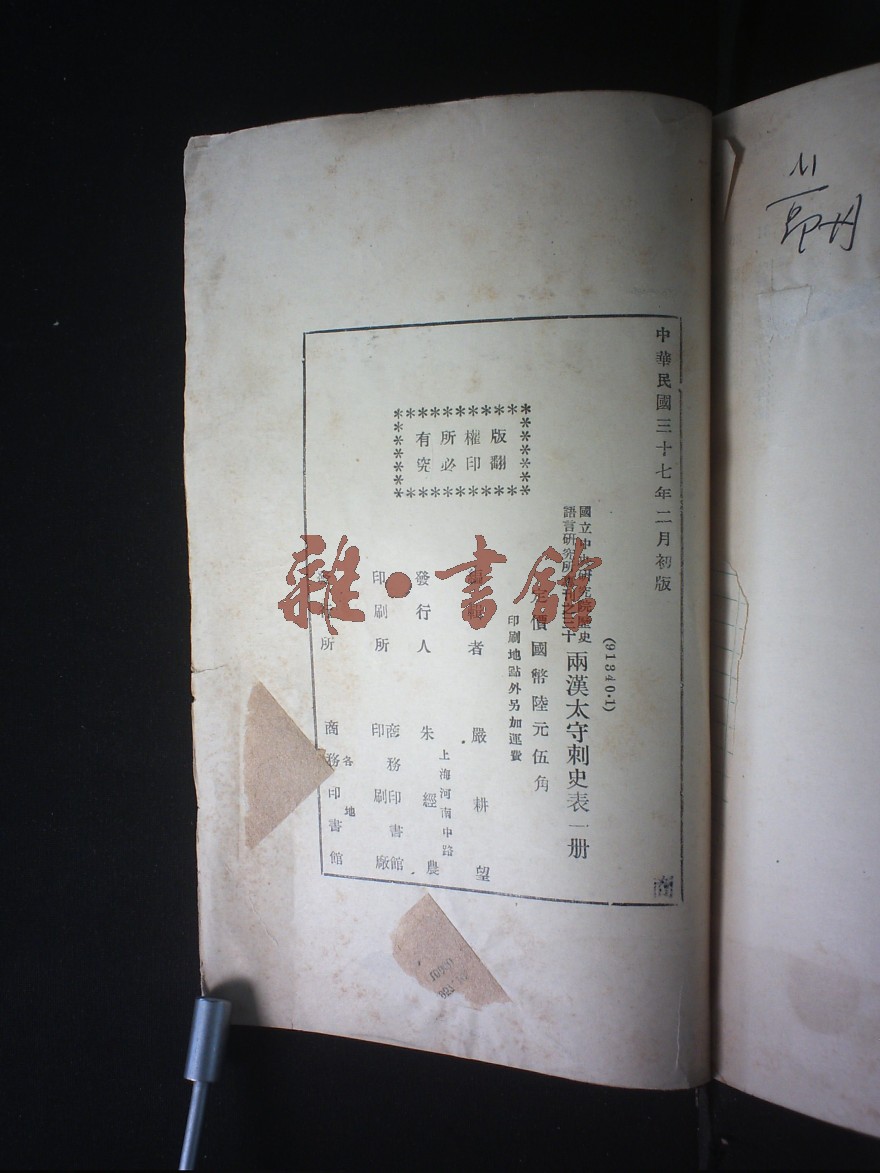 中華民國三十七年二月初版
國立中央研究院歷史
語言研究所專刊之三十
兩漢太守刺史表一册
定價國幣陸元伍角
印刷地點外另加運費
者 嚴耕望
發行人 朱經農
上海河南中路
印刷所 商務印書館
印刷廠
所 各地
商務印書館
版權所有
翻印必究
雜·書館